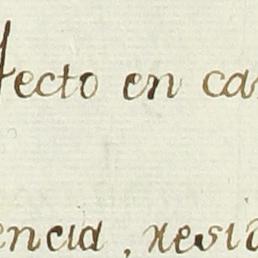 fecto en ca
encia, resi